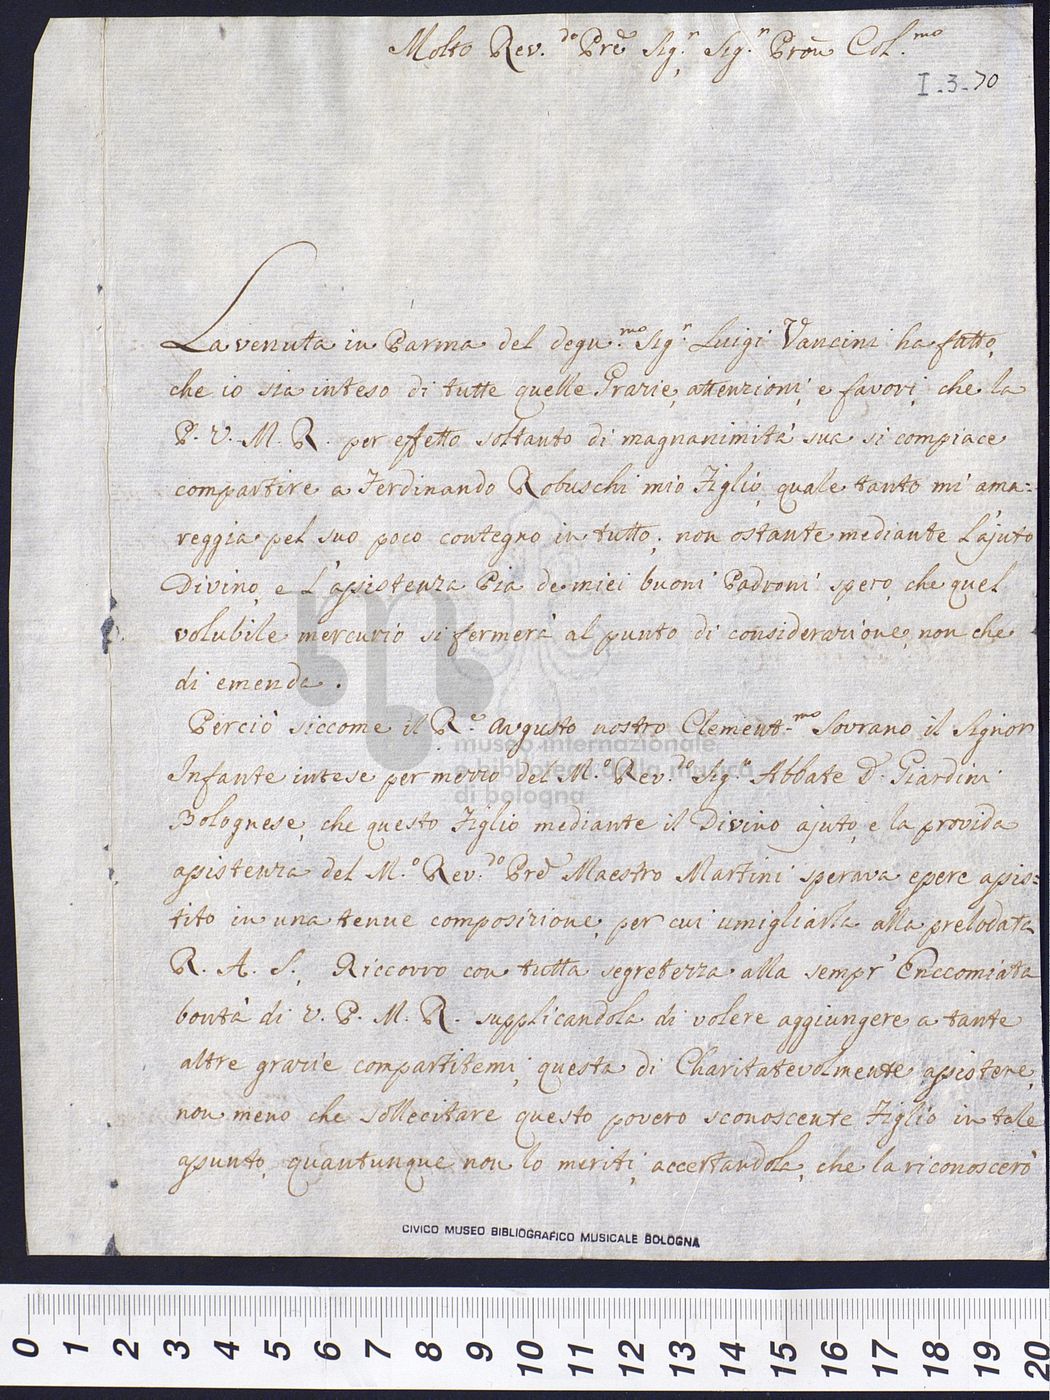 Molto Rev.do Pre Sig.r Sig.r Prōn Col.mo
I-3-70
La venuta in Parma del degn.mo Sig.r Luigi Vancini ha fatto,
che io sia inteso di tutte quelle Grazie, attenzioni, e favori, che la
P. V. M. R. per effetto soltanto di magnanimità sua si compiace
compartire a Ferdinando Robuschi mio Figlio, quale tanto mi ama=
reggia pel suo poco contegno in tutto; non ostante mediante L'ajuto
Divino, e L'assistenza Pia de miei buoni Padroni spero, che quel
volubile mercurio si fermerà al punto di considerazione, non che
di emenda.
Perciò siccome il R.e Augusto nostro Clement.mo Sovrano il Signor
Infante intese per mezzo del M.o Rev.do Sig.r Abbate D. Giardini
Bolognese, che questo Figlio mediante il Divino ajuto, e la provida
assistenza del M.o Rev.do Pre Maestro Martini sperava essere assis=
tito in una tenue composizione, per cui umigliarla alla prelodata
R. A. S., Riccorro con tutta segretezza alla sempr' Enccomiata
bontà di V. P. M. R. supplicandola di volere aggiungere a tante
altre grazie compartitemi, questa di Charitatevolmente assistere,
non meno che sollecitare questo povero sconoscente Figlio in tale
assunto, quantunque non lo meriti, accertandola, che la riconoscerò
museo internazionale
e biblioteca della musica
di bologna
CIVICO MUSEO BIBLIOGRAFICO MUSICALE BOLOGNA
0 1 2 3 4 5 6 7 8 9 10 11 12 13 14 15 16 17 18 19 20